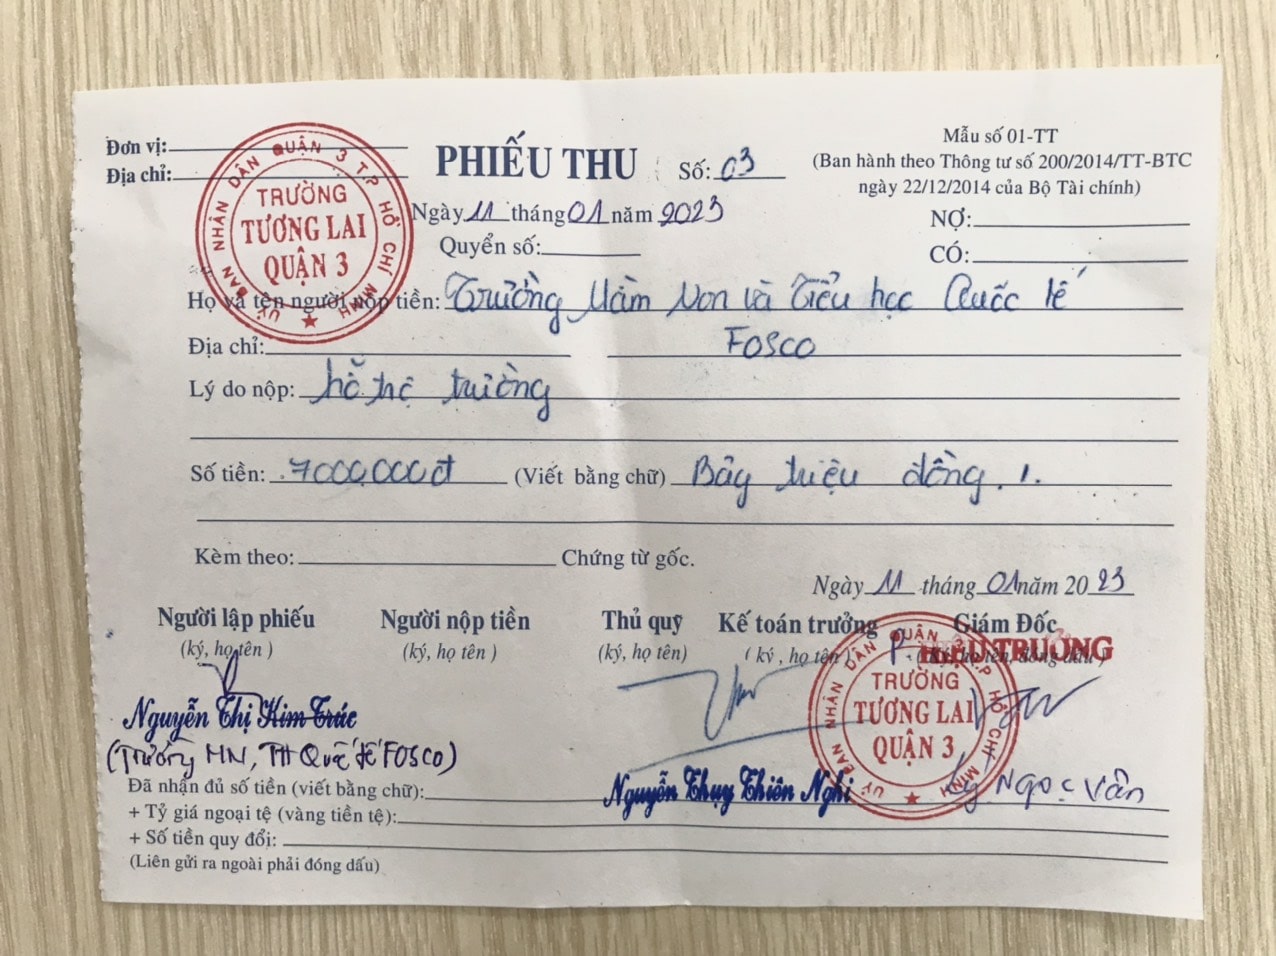 Đơn vị:
Địa chỉ:
ỦY BAN NHÂN DÂN QUẬN 3 T.P HỒ CHÍ MINH
TRƯỜNG
TƯƠNG LAI
QUẬN 3
PHIẾU THU
Số: 03
Mẫu số 01-TT
(Ban hành theo Thông tư số 200/2014/TT-BTC
ngày 22/12/2014 của Bộ Tài chính)
Ngày 11 tháng 01 năm 2023
Quyển số:
NỢ:
CÓ:
Họ và tên người nộp tiền: Trường Mầm Non và Tiểu học Quốc tế
Địa chỉ: FOSCO
Lý do nộp: hỗ trợ trường
Số tiền: 7000.000đ (Viết bằng chữ) Bảy triệu đồng./.
Kèm theo: Chứng từ gốc.
Ngày 11 tháng 01 năm 2023
Người lập phiếu Người nộp tiền Thủ quỹ Kế toán trưởng Giám Đốc
(ký, họ tên ) (ký, họ tên ) (ký, họ tên) ( ký , họ tên ) (ký, họ tên, đóng dấu )
P. HIỆU TRƯỞNG
ỦY BAN NHÂN DÂN QUẬN 3 T.P HỒ CHÍ MINH
TRƯỜNG
TƯƠNG LAI
QUẬN 3
Nguyễn Thị Kim Trúc
(Trường MN, TH Quốc tế FOSCO)
Nguyễn Thụy Thiên Nghi
Lý Ngọc Vân
Đã nhận đủ số tiền (viết bằng chữ):
+ Tỷ giá ngoại tệ (vàng tiền tệ):
+ Số tiền quy đổi:
(Liên gửi ra ngoài phải đóng dấu)